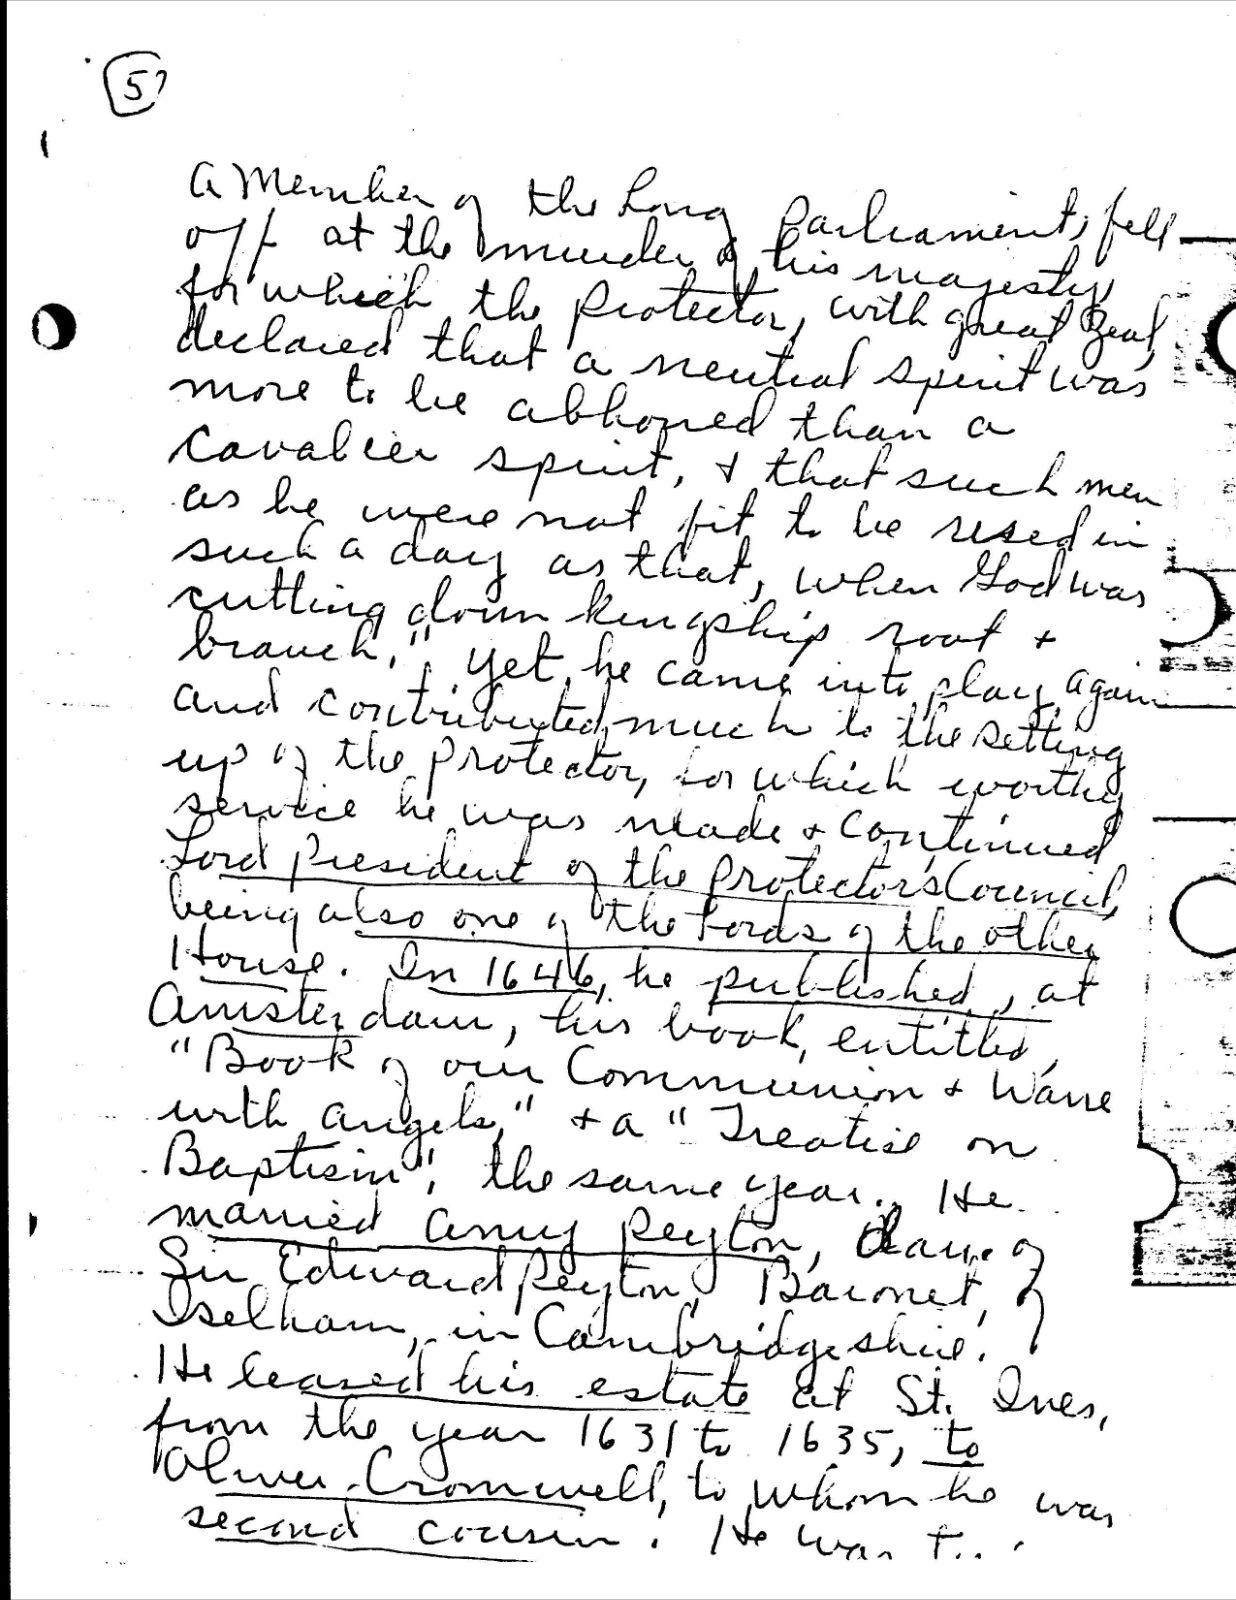 5
A Member of the Long Parliament, fell
off at the murder of his majesty,
for which the Protector, with great Zeal,
declared that a neutral spirit was
more to be abhored than a
Cavalier spirit, & that such men
as he were not fit to be used in
such a day as that, when God was
cutting down kingship root &
branch." Yet, he came into play again
and contributed much to the setting
up of the Protector, for which worthy
service he was made & continued
Lord President of the Protector's Council,
being also one of the Lords of the other
House. In 1646, he published, at
Amsterdam, his book, entitled,
"Book of our Communion & Warre
with angels," & a "Treatise on
Baptism", the same year. He
married Amy Peyton, dau. of
Sir Edward Peyton, Baronet, of
Iselham, in Cambridgeshire.
He leased his estate at St. Ives,
from the year 1631 to 1635, to
Oliver Cromwell, to whom he was
second cousin. He was